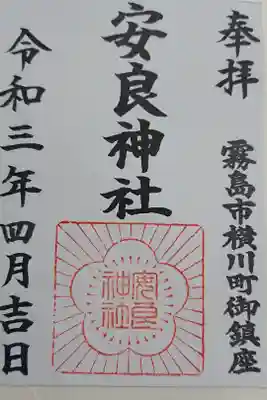 奉拝
霧島市横川町御鎮座
安良神社
安良
神社
令和三年四月吉日